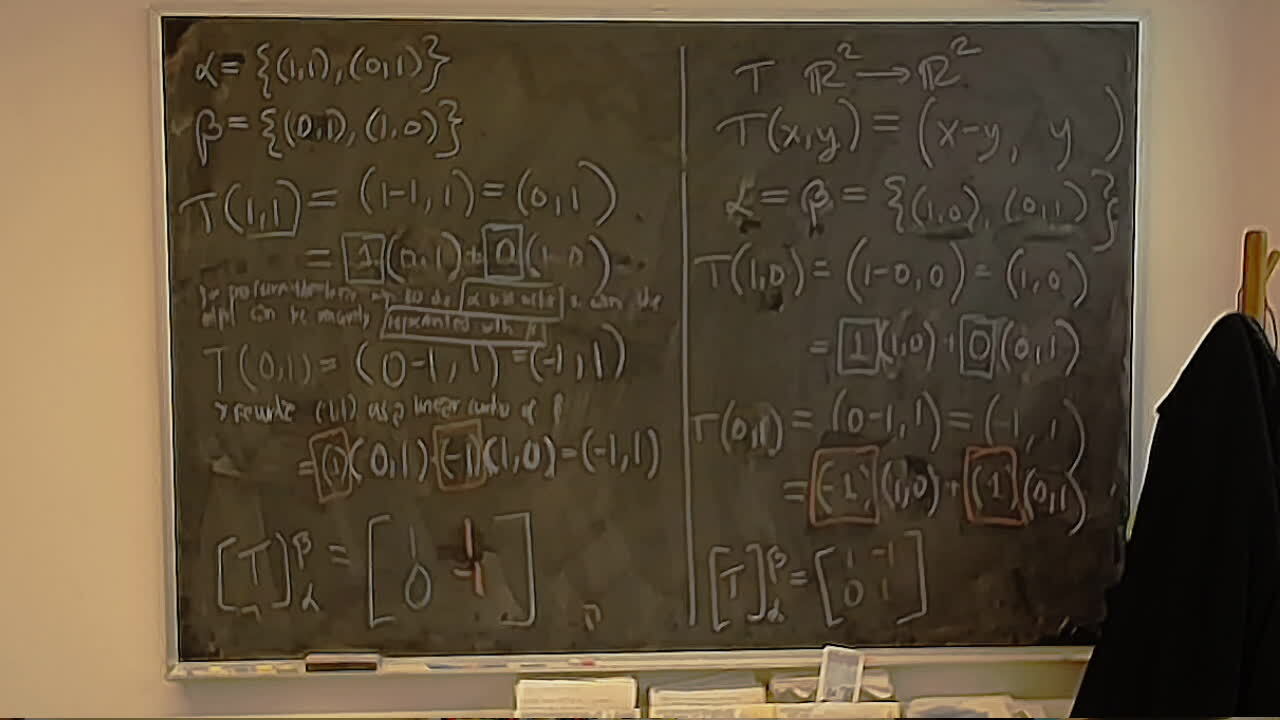 α = {(1,1), (0,1)}
β = {(0,1), (1,0)}
T(1,1) = (1-1, 1) = (0,1)
= 1(0,1) + 0(1,0)
can be
represented with β
T(0,1) = (0-1, 1) = (-1,1)
rewrite as a linear combo of β
= (0,1) (-1)(1,0) = (-1,1)
[T]
β
α
= [1
0
T ℝ² → ℝ²
T(x,y) = (x-y, y)
α = β = {(1,0), (0,1)}
T(1,0) = (1-0,0) = (1,0)
= 1(1,0) + 0(0,1)
T(0,1) = (0-1,1) = (-1, 1)
= (-1)(1,0) + (1)(0,1)
[T]
β
α
= [1 -1
0 1]